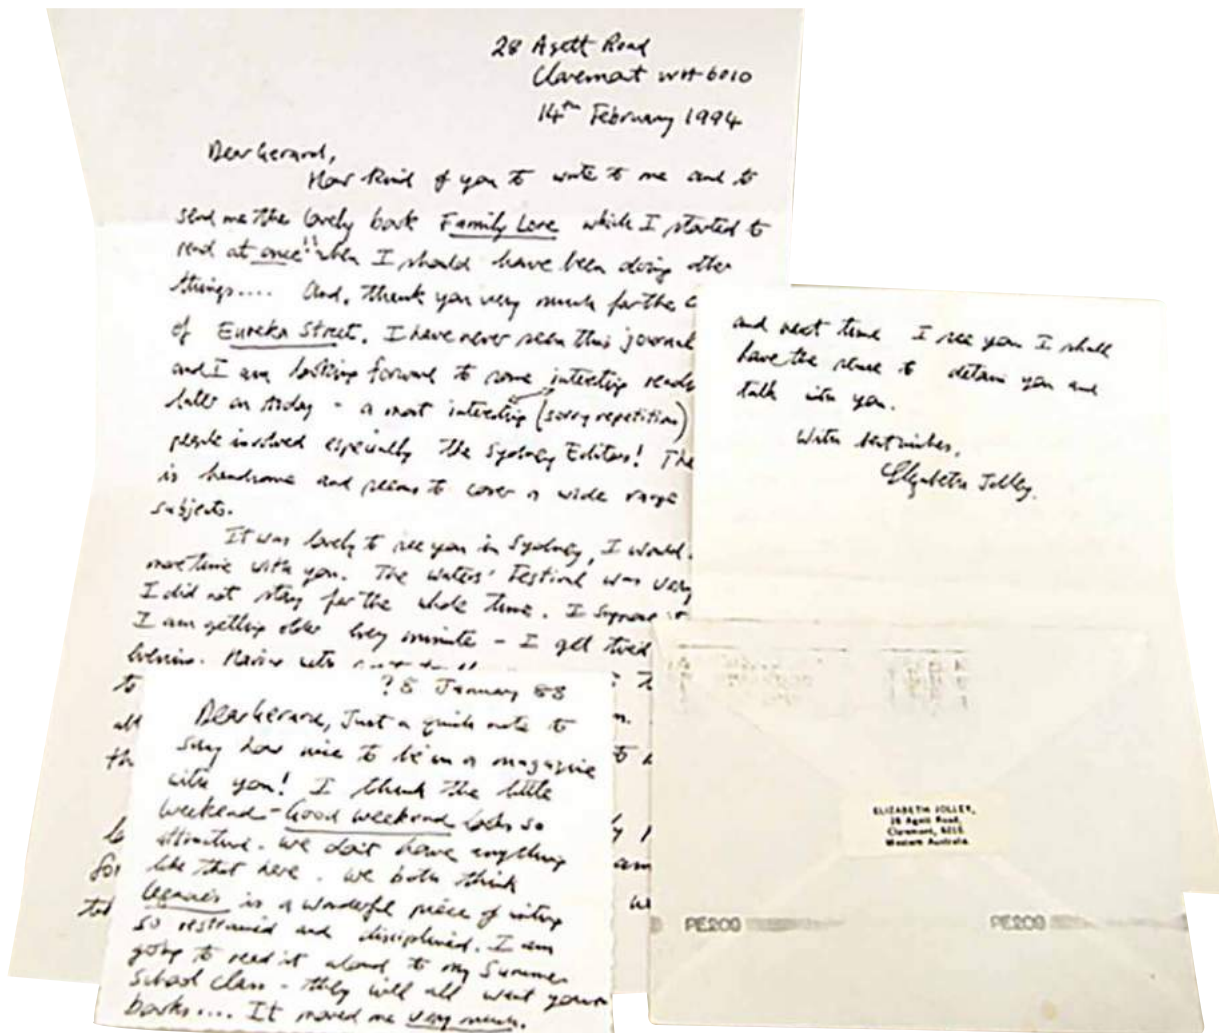 28 Agett Road
Claremont WA 6010
14th February 1994
Dear Gerard,
How kind of you to write to me and to
send me the lovely book Family Lore which I started to
read at once!! when I should have been doing other
things.... And, thank you very much for the
of Eureka Street. I have never seen this journal
and I am looking forward to some interesting
later on today - a most interesting (sorry repetition)
people involved especially the Sydney Editors! The
is handsome and seems to cover a wide range
subjects.
It was lovely to see you in Sydney, I would
more time with you. The Writers' Festival was very
I did not stay for the whole time. I suppose it
I am getting older every minute - I get tired
to
and next time I see you I shall
have the sense to detain you and
talk with you.
With best wishes,
Elizabeth Jolley.
?8 January 88
Dear Gerard, Just a quick note to
say how nice to be in a magazine
with you! I think the little
weekend - Good weekend looks so
attractive. We don't have anything
like that here. We both think
Legacies is a wonderful piece of writing
so restrained and disciplined. I am
going to read it aloud to my Summer
School class - they will all want your
books.... It moved me very much.
ELIZABETH JOLLEY,
28 Agett Road,
Claremont, 6010
Western Australia
PE200 PE200